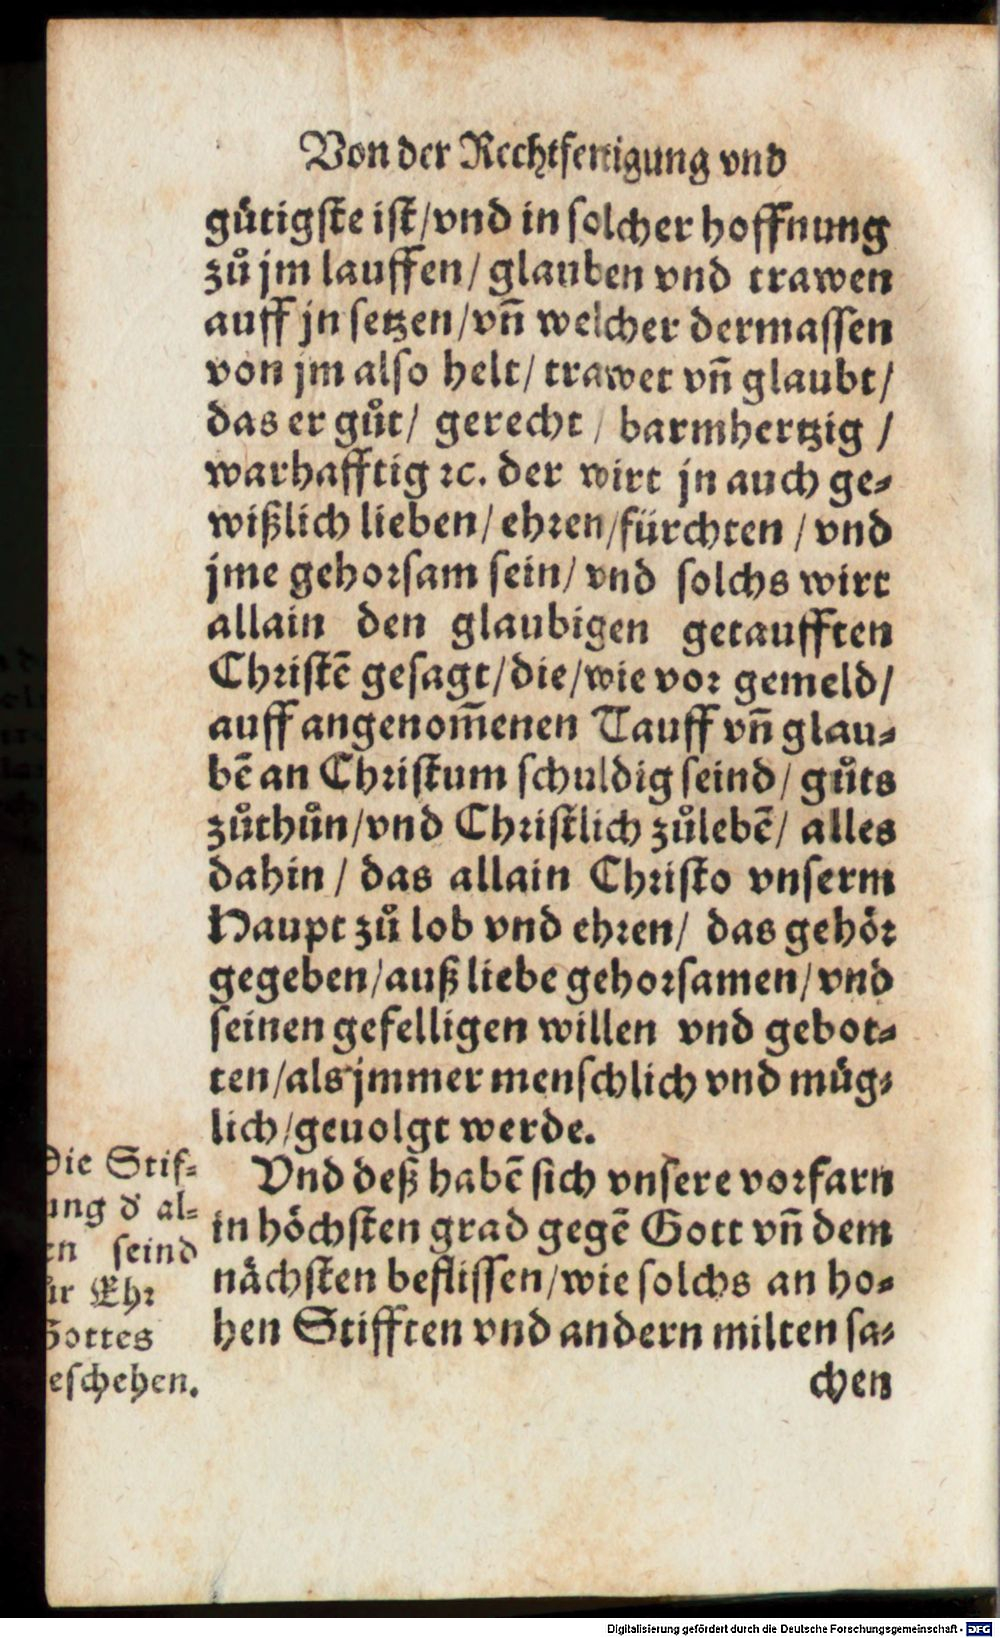 Von der Rechtfertigung vnd
gütigste ist/vnd in solcher hoffnung
zů jm lauffen/ glauben vnd trawen
auff jn setzen/vñ welcher dermassen
von jm also helt/ trawet vñ glaubt/
das er gůt/ gerecht / barmhertzig /
warhafftig ꝛc. der wirt jn auch ge-
wißlich lieben/ ehren/fürchten / vnd
jme gehorsam sein/ vnd solchs wirt
allain den glaubigen getaufften
Christē gesagt/die/wie vor gemeld/
auff angenom̄enen Tauff vñ glau-
bē an Christum schuldig seind/ gůts
zůthůn/vnd Christlich zůlebē/ alles
dahin / das allain Christo vnserm
Haupt zů lob vnd ehren/ das gehör
gegeben/auß liebe gehorsamen/vnd
seinen gefelligen willen vnd gebot-
ten/als jmmer menschlich vnd müg-
lich/geuolgt werde.
Vnd deß habē sich vnsere vorfarn
in höchsten grad gegē Gott vñ dem
nächsten beflissen/wie solchs an ho-
hen Stifften vnd andern milten sa-
chen
Die Stif-
ung d' al-
en seind
ůr Ehr
Gottes
eschehen.
Digitalisierung gefördert durch die Deutsche Forschungsgemeinschaft - DFG